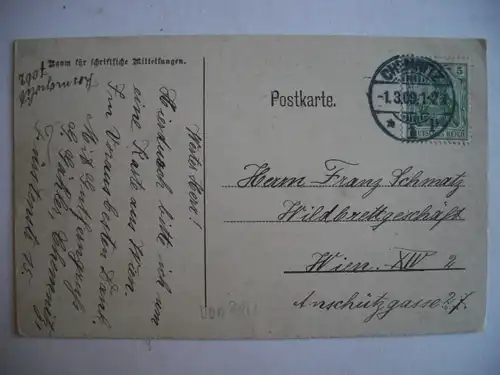 Raum für schriftliche Mitteilungen.
Postkarte.
CHEMNITZ
-1.3.09.1-2
5
DEUTSCHES REICH
Werter Herr!
Hierdurch bitte ich um
eine Karte aus Wien.
Im Voraus besten Dank.
Mit
Chemnitz
15.
Herrn Franz Schmatz
Wildbrettgeschäft
Wien. XIV 2
Anschützgasse 27.